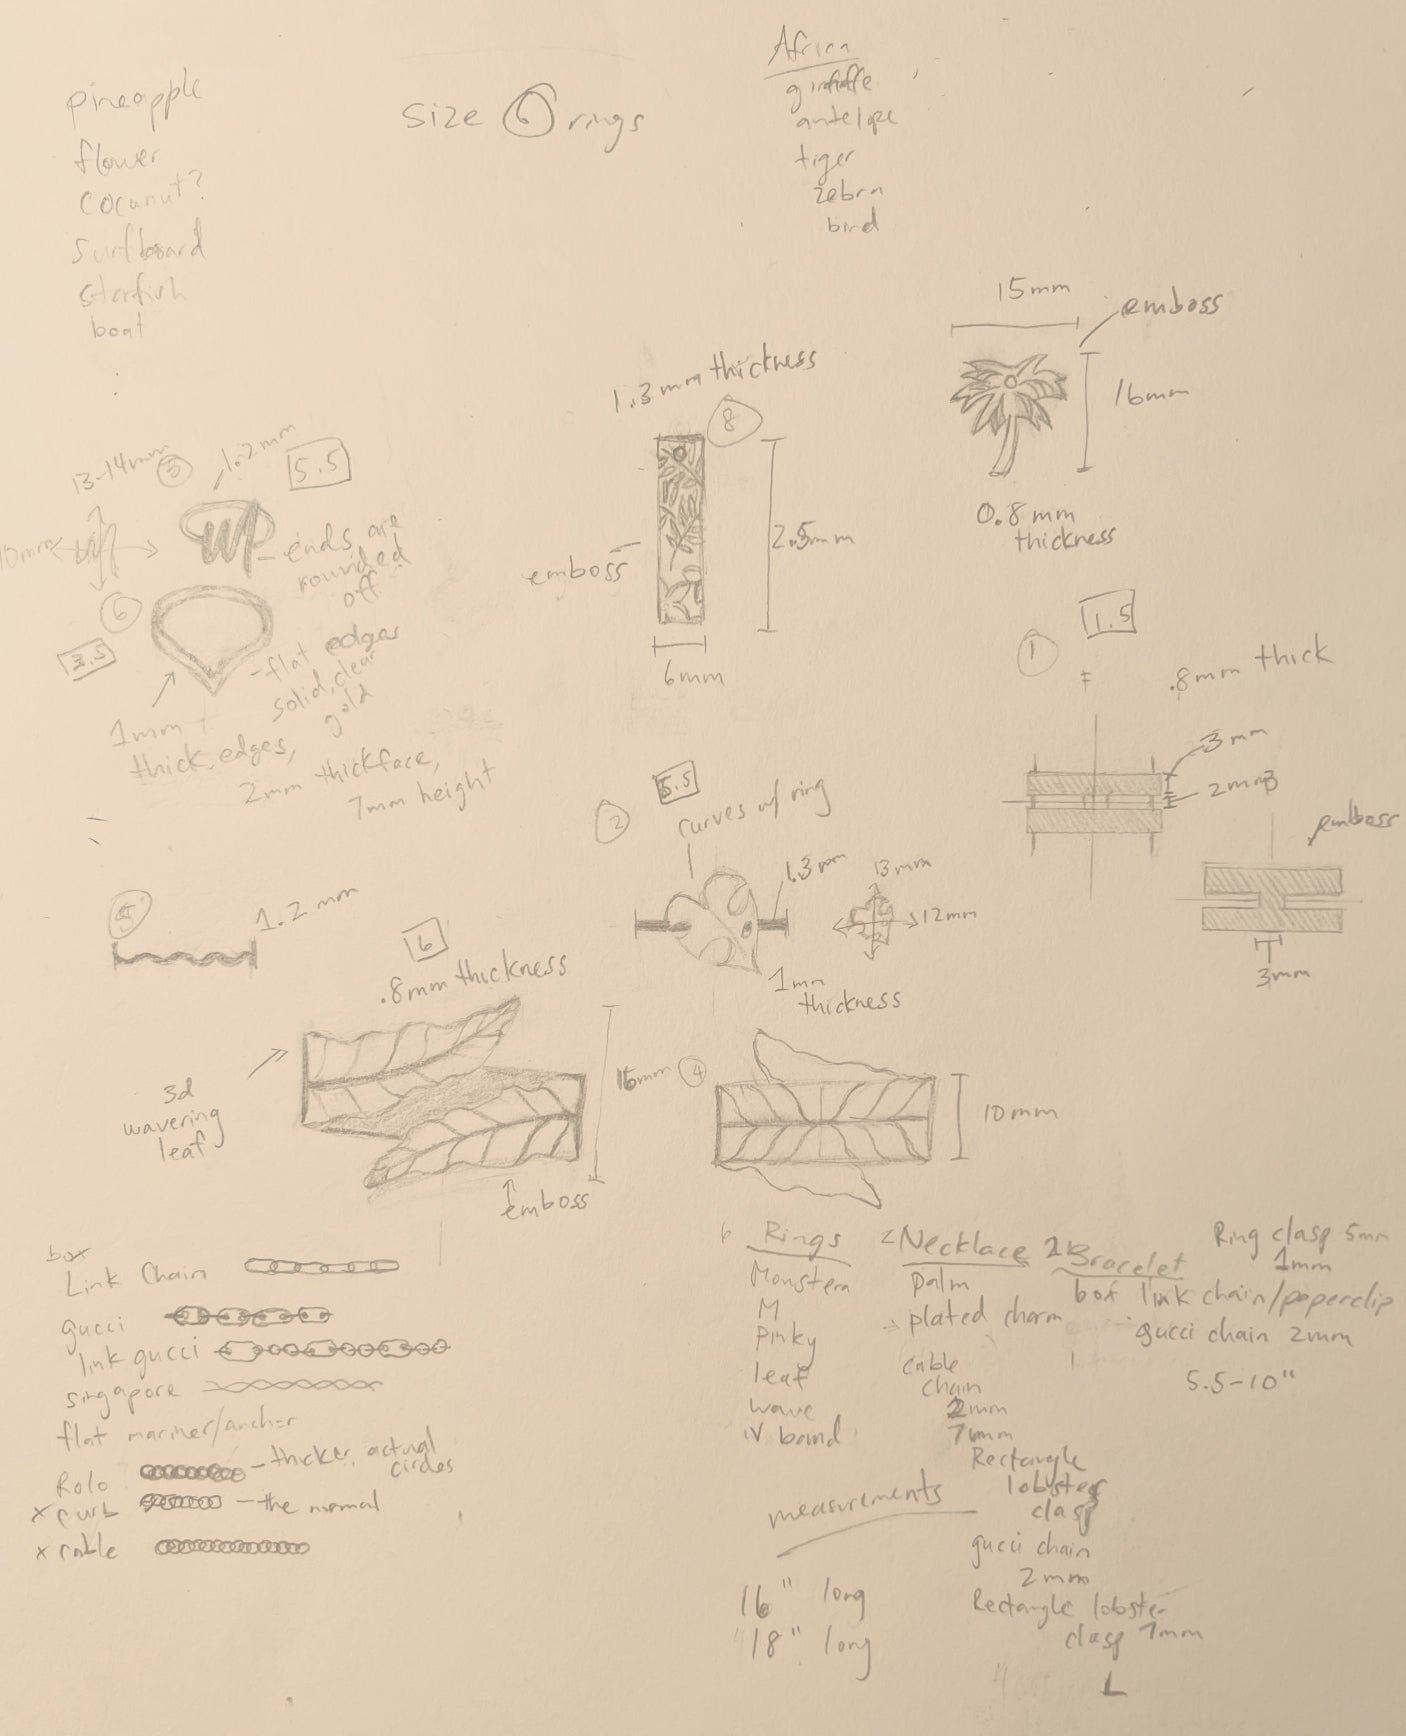 pineapple
flower
coconut?
surfboard
starfish
boat
Size 6 rings
Africa
giraffe
antelope
tiger
zebra
bird
15mm
emboss
16mm
0.8mm
thickness
1.3mm thickness
8
2.5mm
emboss
6mm
13-14mm
3
1.2mm
5.5
10mm
ends are
rounded
off
6
3.5
flat edges
solid, clear
gold
1mm
thick edges,
2mm thickface,
7mm height
1
1.5
.8mm thick
3mm
2mm
emboss
3mm
2
5.5
curves w/ ring
1.3mm
13mm
12mm
1mm
thickness
5
1.2mm
6
.8mm thickness
3d
wavering
leaf
16mm
emboss
4
10mm
box
Link Chain
gucci
link gucci
singapore
flat mariner/anchor
Rolo - thicker, actual
circles
x curb - the normal
x cable
6 Rings
Monstera
M
Pinky
leaf
wave
band
2 Necklace
palm
plated charm
cable
chain
2mm
7mm
Rectangle
lobster
clasp
gucci chain
2mm
Rectangle lobster
clasp 7mm
L
Bracelet
box link chain/paperclip
gucci chain 2mm
5.5-10"
Ring clasp 5mm
1mm
measurements
16" long
18" long